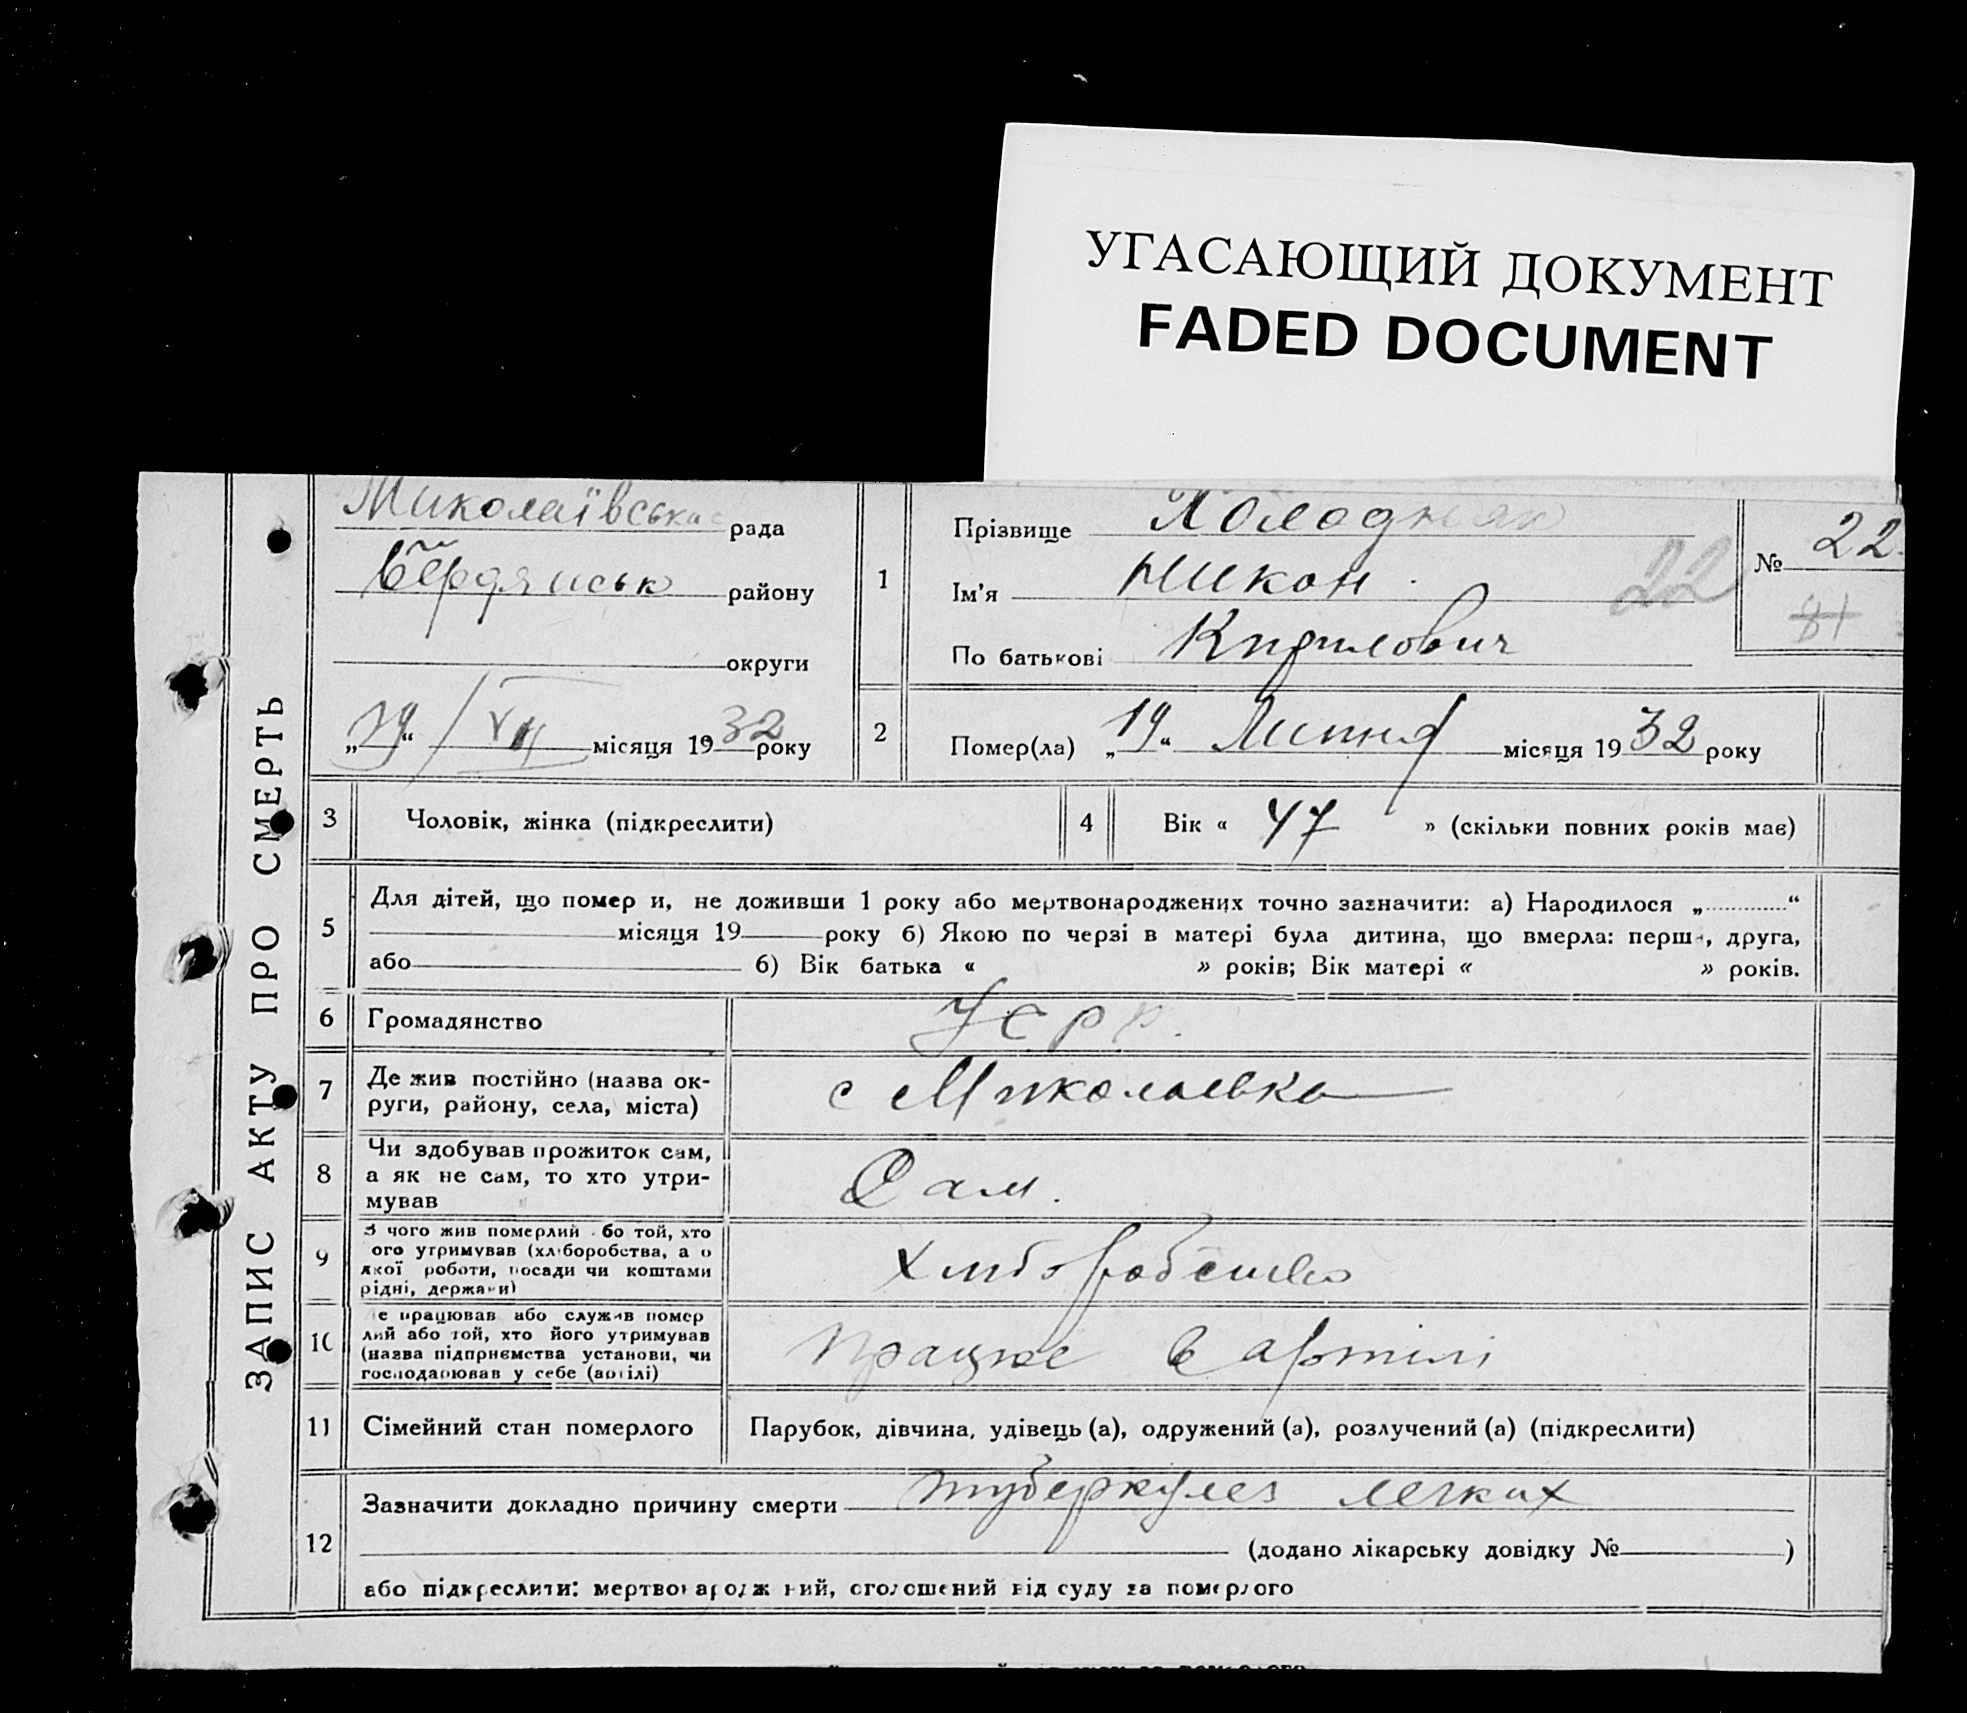 УГАСАЮЩИЙ ДОКУМЕНТ
FADED DOCUMENT
ЗАПИС АКТУ ПРО СМЕРТЬ
Миколаївська рада
Бердянськ району
округи
„19“ VII місяця 1932 року
1
Прізвище Холодняк
Ім'я Никон
По батькові Кирилович
№ 22
22
81
2
Помер(ла) „19“ Липня місяця 1932 року
3 Чоловік, жінка (підкреслити)
4 Вік « 47 » (скільки повних років має)
5
Для дітей, що помер и, не доживши 1 року або мертвонароджених точно зазначити: а) Народилося „ “
місяця 19 року б) Якою по черзі в матері була дитина, що вмерла: перш , друга,
або б) Вік батька « » років; Вік матері « » років.
6 Громадянство УСРР.
7 Де жив постійно (назва ок-
руги, району, села, міста)
с Миколаевка
8 Чи здобував прожиток сам,
а як не сам, то хто утри-
мував
Сам.
9 З чого жив померлий бо той, хто
ого утримував (хліборобства, а о
якої роботи, посади чи коштами
рідні, держави)
Хліборобство
10 е працював або служив помер
лий або той, хто його утримував
(назва підприємства установи, чи
господарював у себе (артілі)
працює в артілі
11 Сімейний стан померлого Парубок, дівчина, удівець (а), одружений (а), розлучений (а) (підкреслити)
12
Зазначити докладно причину смерти туберкулез легких
(додано лікарську довідку № )
або підкреслити: мертвонароджений, оголошений від суду за померлого